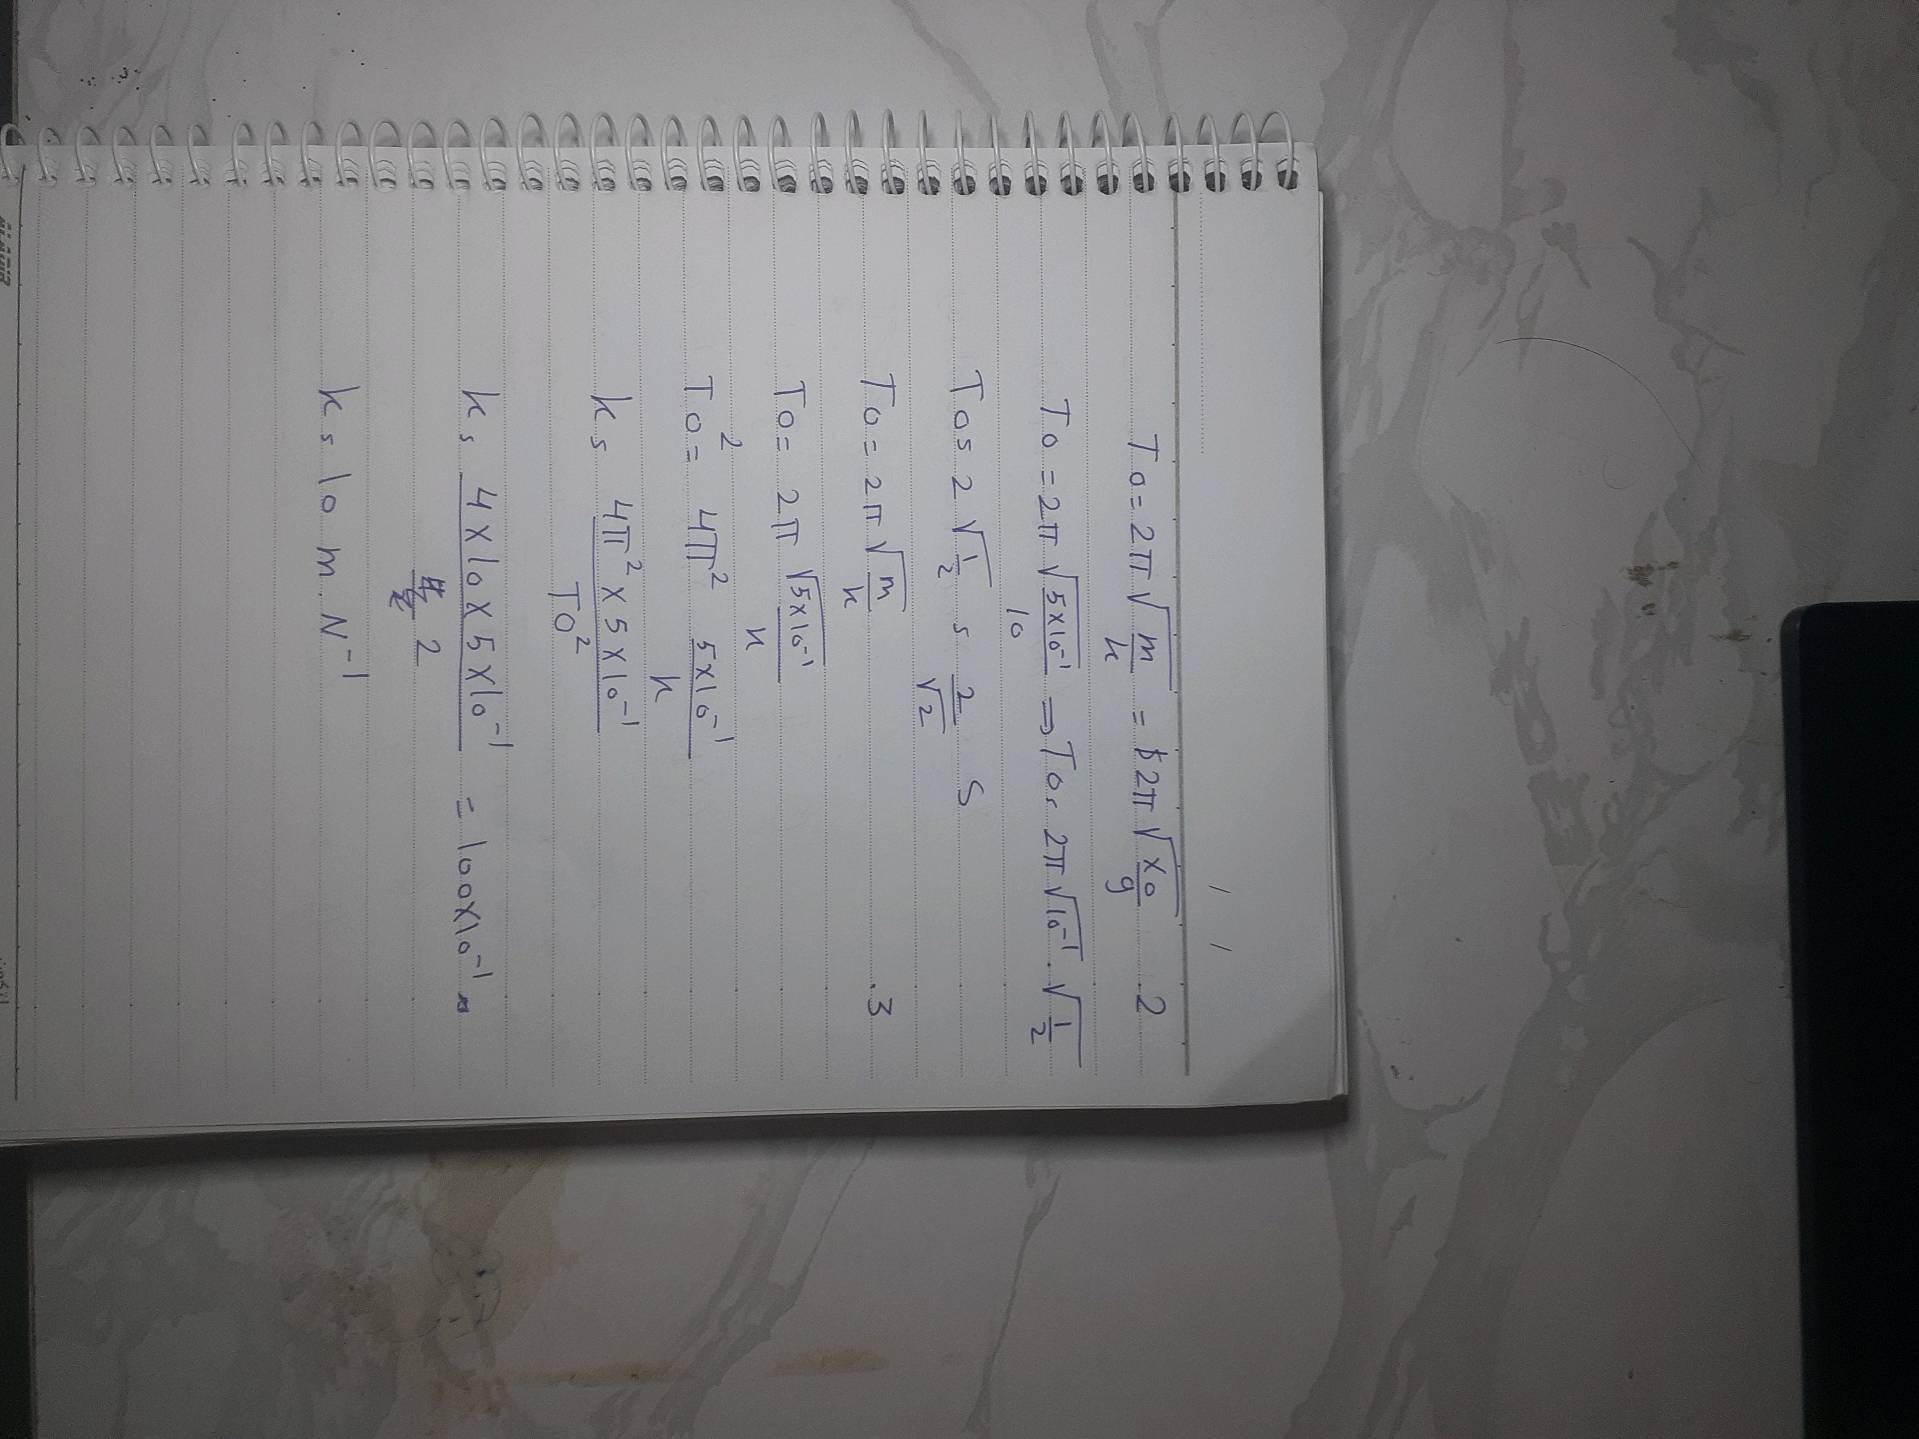 / /
T0 = 2π √m/k = 2π √x0/g 2
T0 = 2π √5x10⁻¹/10 ⇒ T0s 2π √10⁻¹ . √1/2
T0s 2 √1/2 s 2/√2 S
T0 = 2π √m/k .3
T0 = 2π √5x10⁻¹/k
T0² = 4π² 5x10⁻¹/k
k s 4π² x 5 x 10⁻¹/T0²
k s 4 x 10 x 5 x 10⁻¹/2 = 100x10⁻¹
k s 10 m . N⁻¹